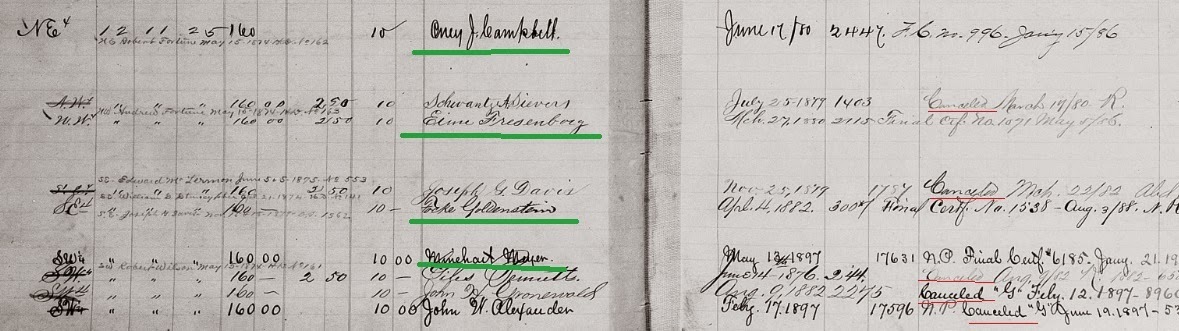 NE 4 12 11 25 160 10 Oney J. Campbell. June 17/80 2447. F.C. no. 996. Jany 15/86
HD Robert Fortune May 15-1874 No. 9162
N.W. 4 " " " 160 00 2 50 10 Schwant A Sievers July 25-1879 1403 Canceled March 19/80 R.
HD Andrew Fortune May 15-1874
N.W. 4 " " " 160 00 2/50 10 Eime Fresenborg Mch. 27, 1880 2115 Final Cef. No. 1071 May 5/86.
SE. Edward Mc Lermon June 5-1875. No 553
S.E. 4 " " " 160 2/50 10 - Joseph G. Davis Nov 25, 1879 1787 Canceled Mch. 22/82
SE William
S.E. 4 " " " 160 - 10 - Focke Goldenstein Apl. 4, 1882 3007 Final Certf. No. 1538 - Aug. 3/88. N.R.
S.E. Joseph
SW4 " " " 160 00 10 00 Minehart Meyer. May 13 1897 17631 N.P. Final Certf. #6185. Jany. 21. 19
SW Robert Wilson May 15-1874
SW4 " " " 160 - 2 50 10 - Giles Bennett. June 14-1876. 244 Canceled Aug.
SW4 " " " 160 - 10 - John H Gronewold Aug. 9, 1882 2275 Canceled "G" Feby. 12. 1897-896
SW4 " " " 160 00 10 00 John W. Alexander Feby. 17. 1897 17596 N.P. Canceled "G" June 19. 1897-53